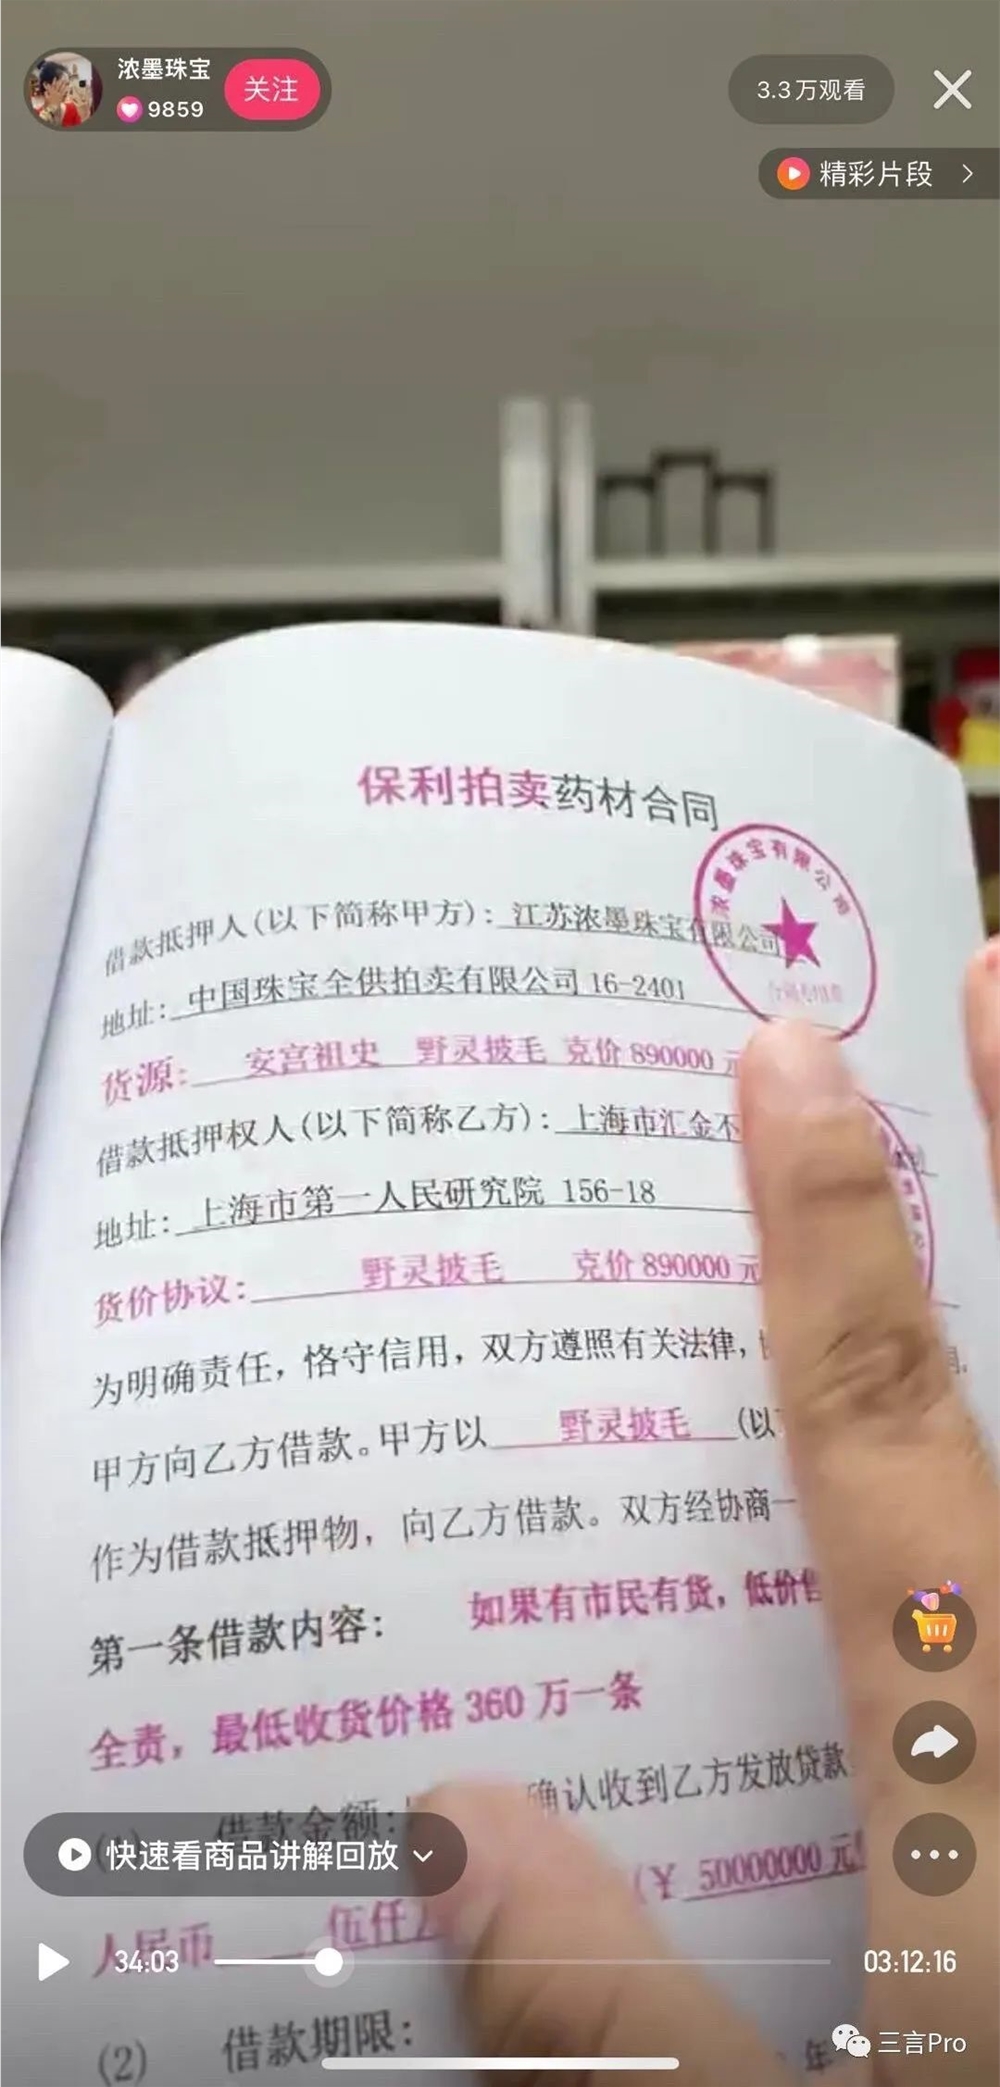 浓墨珠宝
9859
关注
3.3万观看
精彩片段
保利拍卖药材合同
浓墨珠宝有限公司
借款抵押人(以下简称甲方): 江苏浓墨珠宝有限公司
地址: 中国珠宝全供拍卖有限公司 16-2401
货源: 安宫祖史 野灵披毛 克价 890000 元
借款抵押权人(以下简称乙方): 上海市汇金不
地址: 上海市第一人民研究院 156-18
货价协议: 野灵披毛 克价 890000 元
为明确责任，恪守信用，双方遵照有关法律，
甲方向乙方借款。甲方以 野灵披毛 (以
作为借款抵押物，向乙方借款。双方经协商一
第一条借款内容: 如果有市民有货，低价
全责，最低收货价格 360 万一条
借款金额: 确认收到乙方发放贷款
快速看商品讲解回放
(￥ 50000000 元
人民币 伍仟
34:03
03:12:16
(2) 借款期限:
年
三言Pro